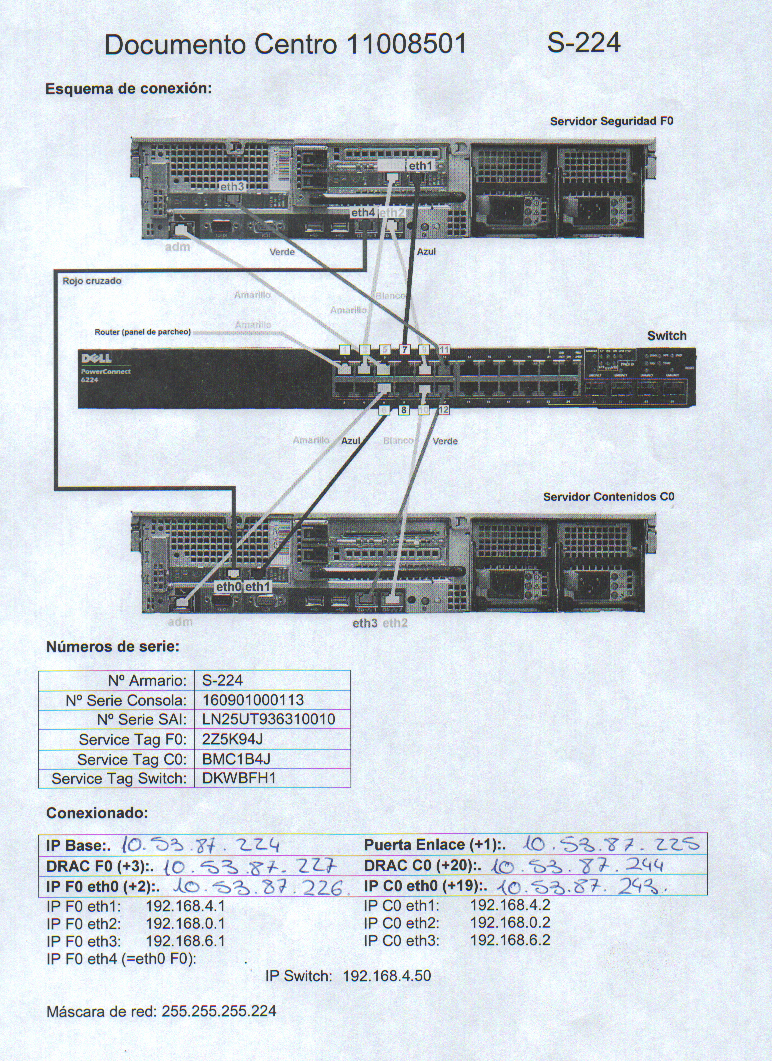 Documento Centro 11008501 S-224
Esquema de conexión:
Servidor Seguridad F0
eth1
eth3
eth4 eth2
adm
Verde
Azul
Rojo cruzado
Amarillo
Blanco
Amarillo
Router (panel de parcheo) Amarillo
Switch
7 9 11
DELL
PowerConnect
6224
6 8 10 12
Amarillo Azul Blanco Verde
Servidor Contenidos C0
eth0 eth1
adm
eth3 eth2
Números de serie:
Nº Armario: S-224
Nº Serie Consola: 160901000113
Nº Serie SAI: LN25UT936310010
Service Tag F0: 2Z5K94J
Service Tag C0: BMC1B4J
Service Tag Switch: DKWBFH1
Conexionado:
IP Base:. 10.53.87.224 Puerta Enlace (+1):. 10.53.87.225
DRAC F0 (+3):. 10.53.87.227 DRAC C0 (+20):. 10.53.87.244
IP F0 eth0 (+2):. 10.53.87.226. IP C0 eth0 (+19):. 10.53.87.243.
IP F0 eth1: 192.168.4.1 IP C0 eth1: 192.168.4.2
IP F0 eth2: 192.168.0.1 IP C0 eth2: 192.168.0.2
IP F0 eth3: 192.168.6.1 IP C0 eth3: 192.168.6.2
IP F0 eth4 (=eth0 F0): .
IP Switch: 192.168.4.50
Máscara de red: 255.255.255.224